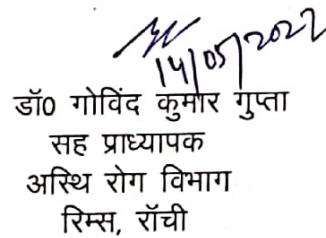 14/05/2022
डॉ0 गोविंद कुमार गुप्ता
सह प्राध्यापक
अस्थि रोग विभाग
रिम्स, राँची